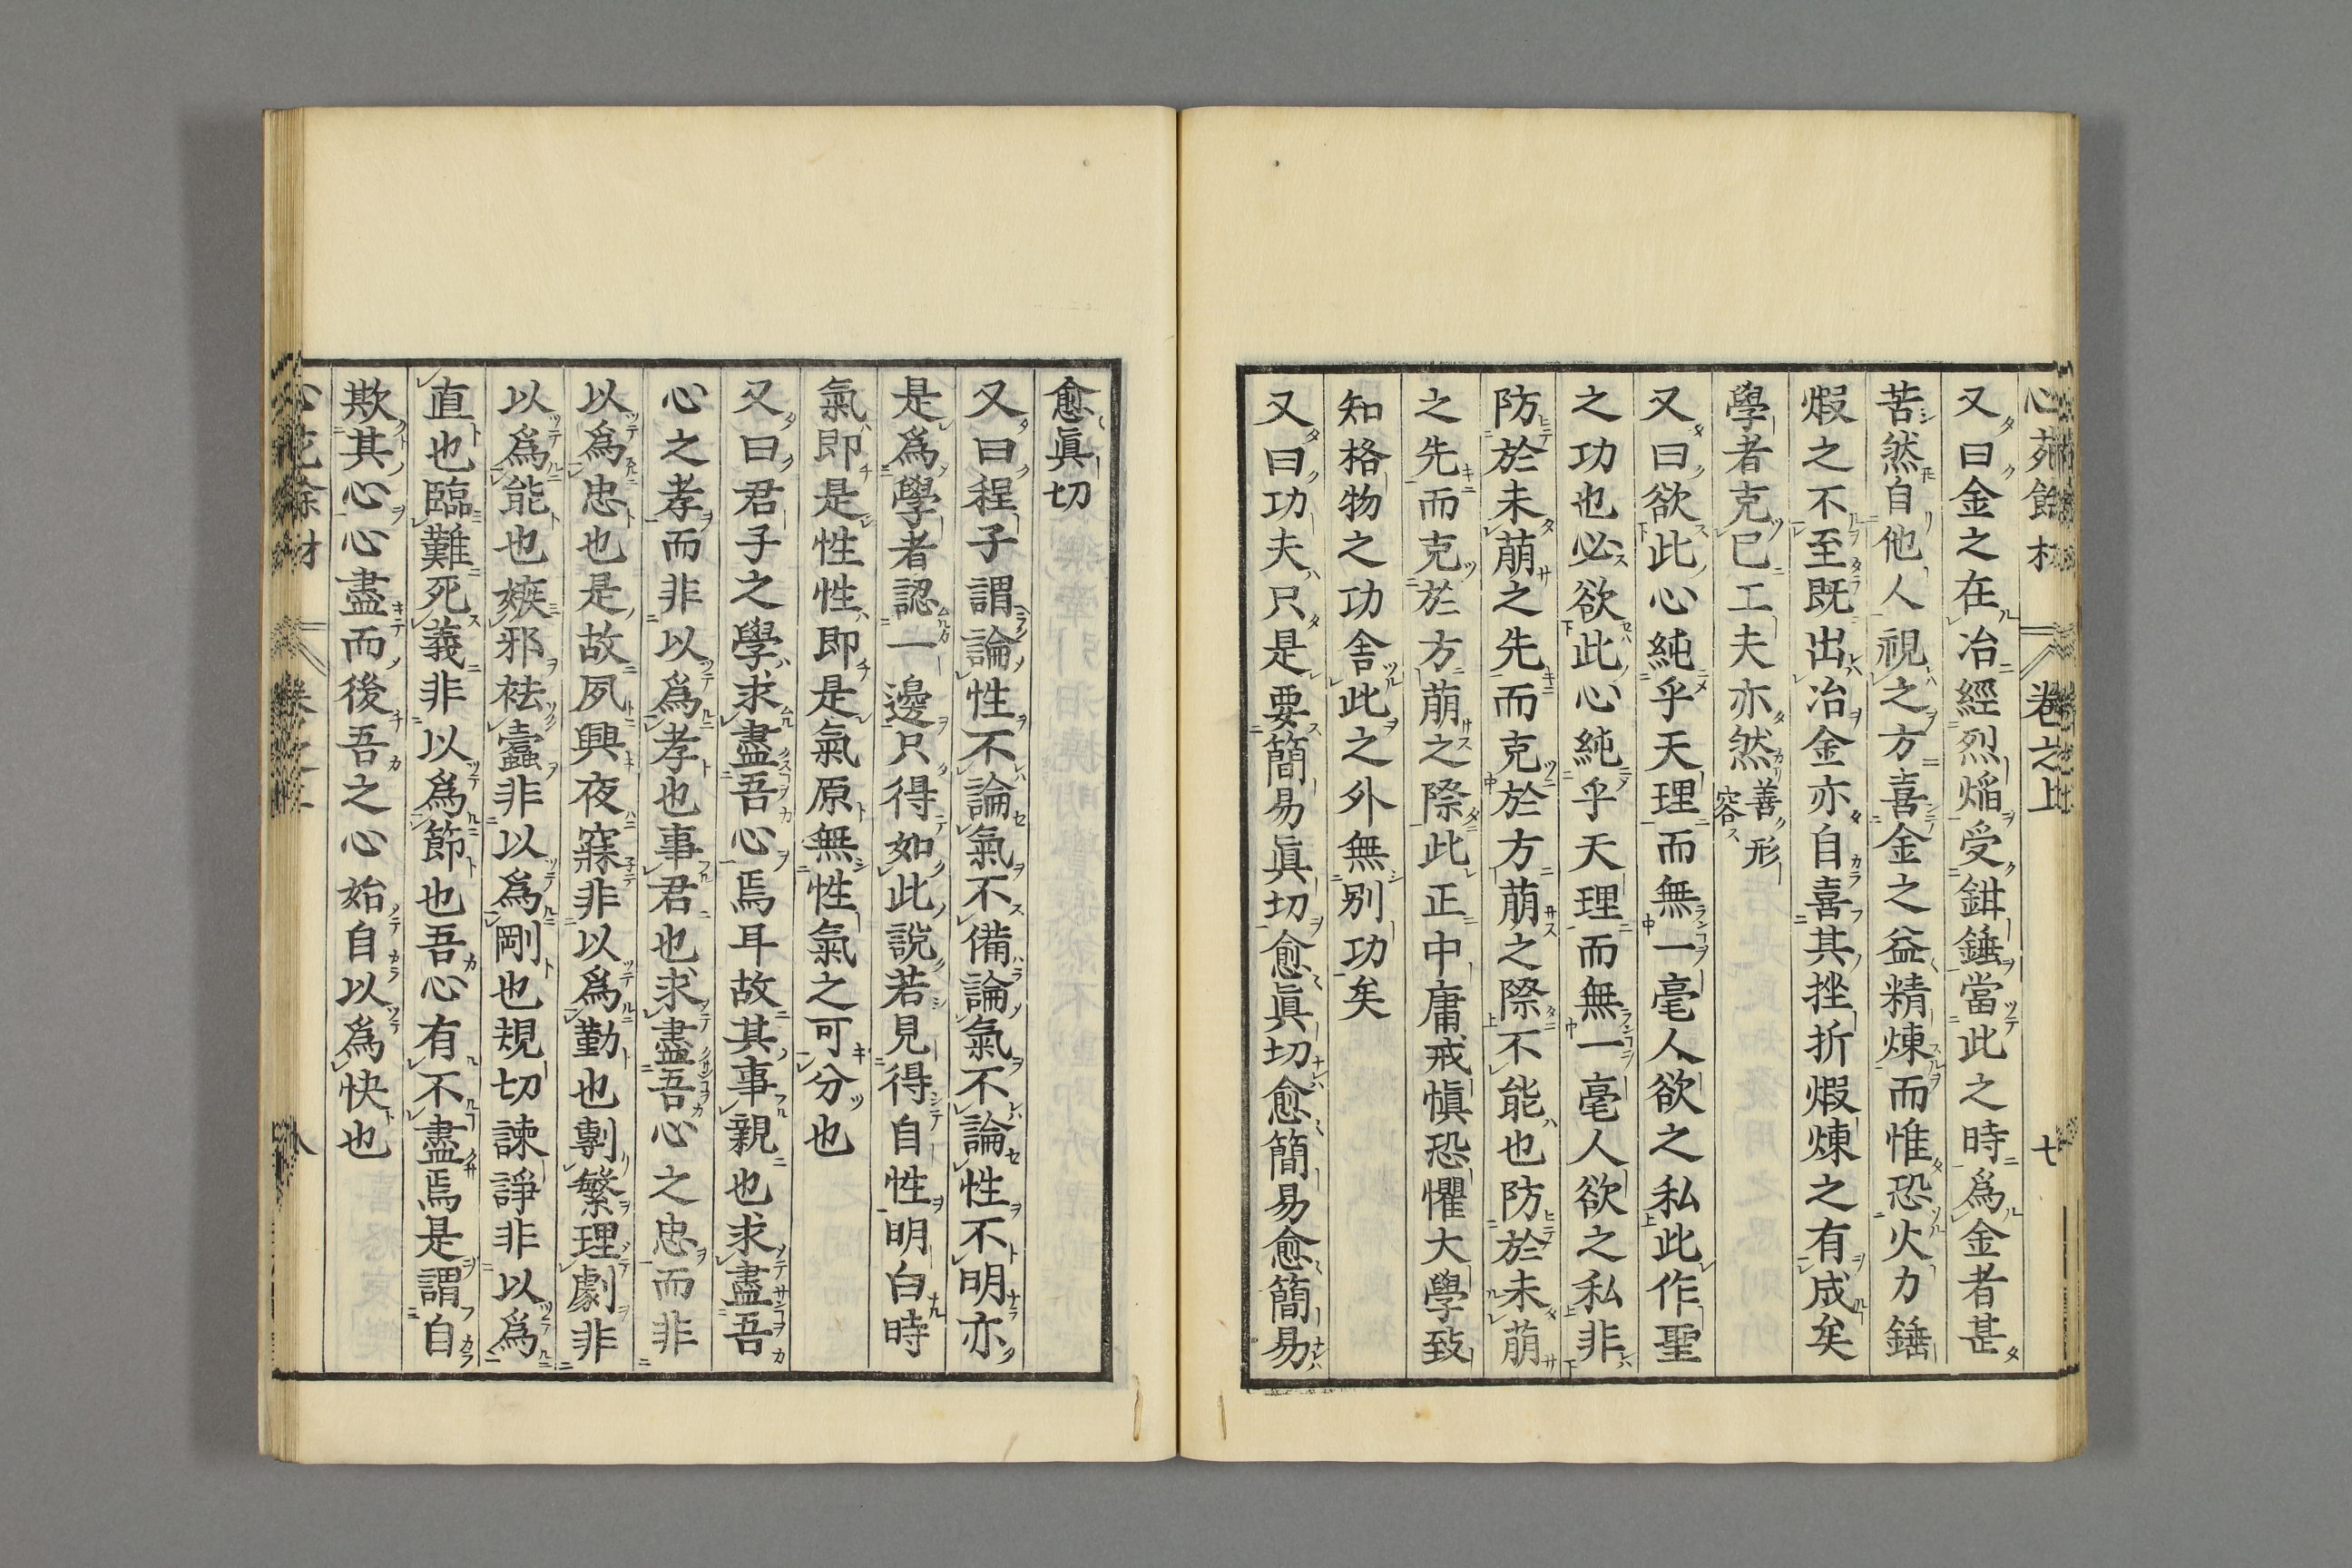 心苑餘材 卷之上 七
又曰金之在冶經烈焔受鉗錘當此之時爲金者甚
苦然自他人視之方喜金之益精煉而惟恐火力錘
煆之不至既出冶金亦自喜其挫折煆煉之有成矣
學者克已工夫亦然善形容
又曰欲此心純乎天理而無一毫人欲之私此作聖
之功也必欲此心純乎天理而無一毫人欲之私非
防於未萠之先而克於方萠之際不能也防於未萠
之先而克於方萠之際此正中庸戒愼恐懼大學致
知格物之功舍此之外無别功矣
又曰功夫只是要簡易眞切愈眞切愈簡易愈簡易
愈眞切
又曰程子謂論性不論氣不備論氣不論性不明亦
是爲學者認一邊只得如此說若見得自性明白時
氣即是性性即是氣原無性氣之可分也
又曰君子之學求盡吾心焉耳故其事親也求盡吾
心之孝而非以爲孝也事君也求盡吾心之忠而非
以爲忠也是故夙興夜寐非以爲勤也剸繁理劇非
以爲能也嫉邪祛蠹非以爲剛也規切諫諍非以爲
直也臨難死義非以爲節也吾心有不盡焉是謂自
欺其心心盡而後吾之心始自以爲快也